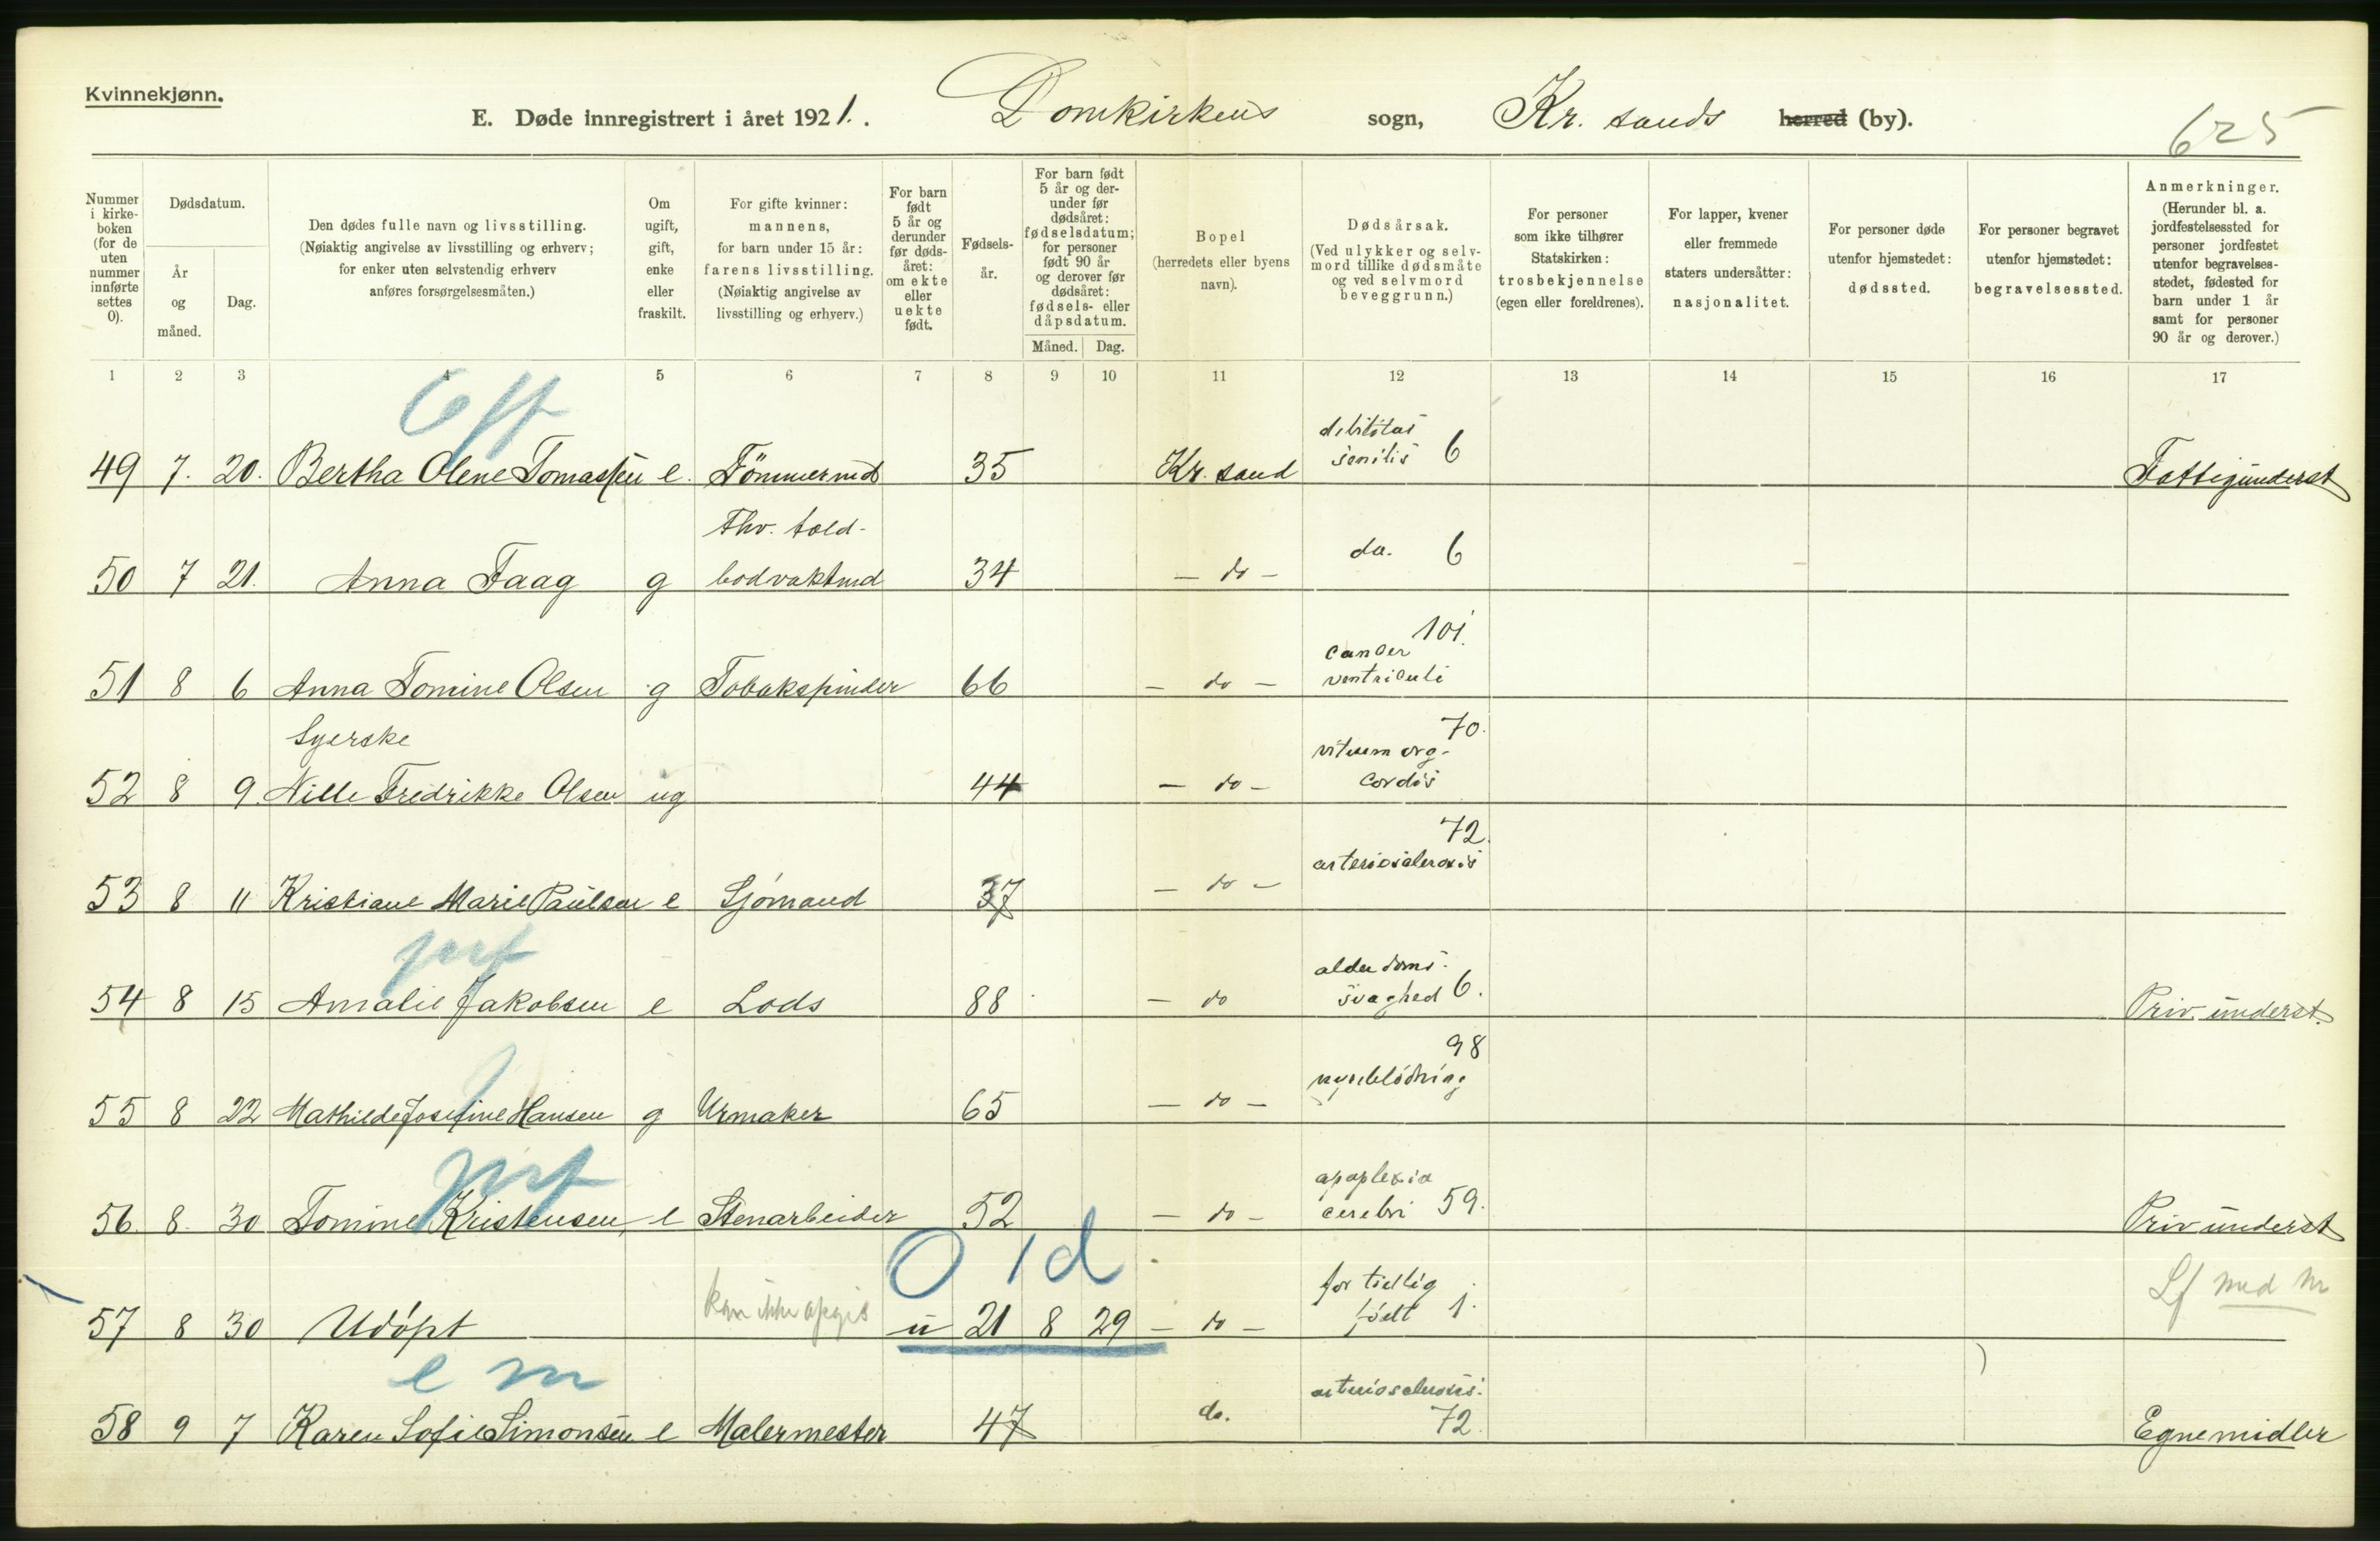 Kvinnekjønn.
E. Døde innregistrert i året 1921. Domkirkens sogn, Kr. sands herred (by).
625
Nummer i kirkeboken (for de uten nummer innførte settes 0).
Dødsdatum.
År og måned.
Dag.
Den dødes fulle navn og livsstilling. (Nøiaktig angivelse av livsstilling og erhverv; for enker uten selvstendig erhverv anføres forsørgelsesmåten.)
Om ugift, gift, enke eller fraskilt.
For gifte kvinner: mannens, for barn under 15 år: farens livsstilling. (Nøiaktig angivelse av livsstilling og erhverv.)
For barn født 5 år og derunder før dødsåret: om ekte eller uekte født.
Fødselsår.
For barn født 5 år og derunder før dødsåret: fødselsdatum; for personer født 90 år og derover før dødsåret: fødsels- eller dåpsdatum.
Måned. Dag.
Bopel (herredets eller byens navn).
Dødsårsak. (Ved ulykker og selvmord tillike dødsmåte og ved selvmord beveggrunn.)
For personer som ikke tilhører Statskirken: trosbekjennelse (egen eller foreldrenes).
For lapper, kvener eller fremmede staters undersåtter: nasjonalitet.
For personer døde utenfor hjemstedet: dødssted.
For personer begravet utenfor hjemstedet: begravelsessted.
Anmerkninger. (Herunder bl. a. jordfestelsessted for personer jordfestet utenfor begravelsesstedet, fødested for barn under 1 år samt for personer 90 år og derover.)
1 2 3 4 5 6 7 8 9 10 11 12 13 14 15 16 17
49 7. 20. Bertha Olene Tomassen e. Tømmermd 35 Kr. sand debilitas senilis 6 Fattigunderst
50 7 21. Anna Faag g Fhv. toldbodvaktmd 34 - do - do. 6
51 8 6 Anna Tomine Olsen g Tobakspinder 66 - do - cancer ventriculi 101.
Syerske
52 8 9 Nille Fredrikke Olsen ug 44 - do - vitium org. cordis 70.
53 8 11 Kristiane Marie Paulsen e Sjømand 37 - do - arteriosclerosis 72.
54 8 15 Amalie Jakobsen e Lods 88 - do alderdomssvaghed 6. Priv. underst.
55 8 22 Mathilde Josefine Hansen g Urmaker 65 - do - nyreblødning 98
56. 8. 30 Tomine Kristensen, e Stenarbeider 52 - do - apoplexia cerebri 59. Priv underst
0 1 d
57 8 30 Udøpt kan ikke opgis u 21 8 29 - do - for tidlig født 1. Lf med m
e m
58 9 7 Karen Sofie Simonsen e Malermester 47 do. arteriosclerosis. 72. Egne midler